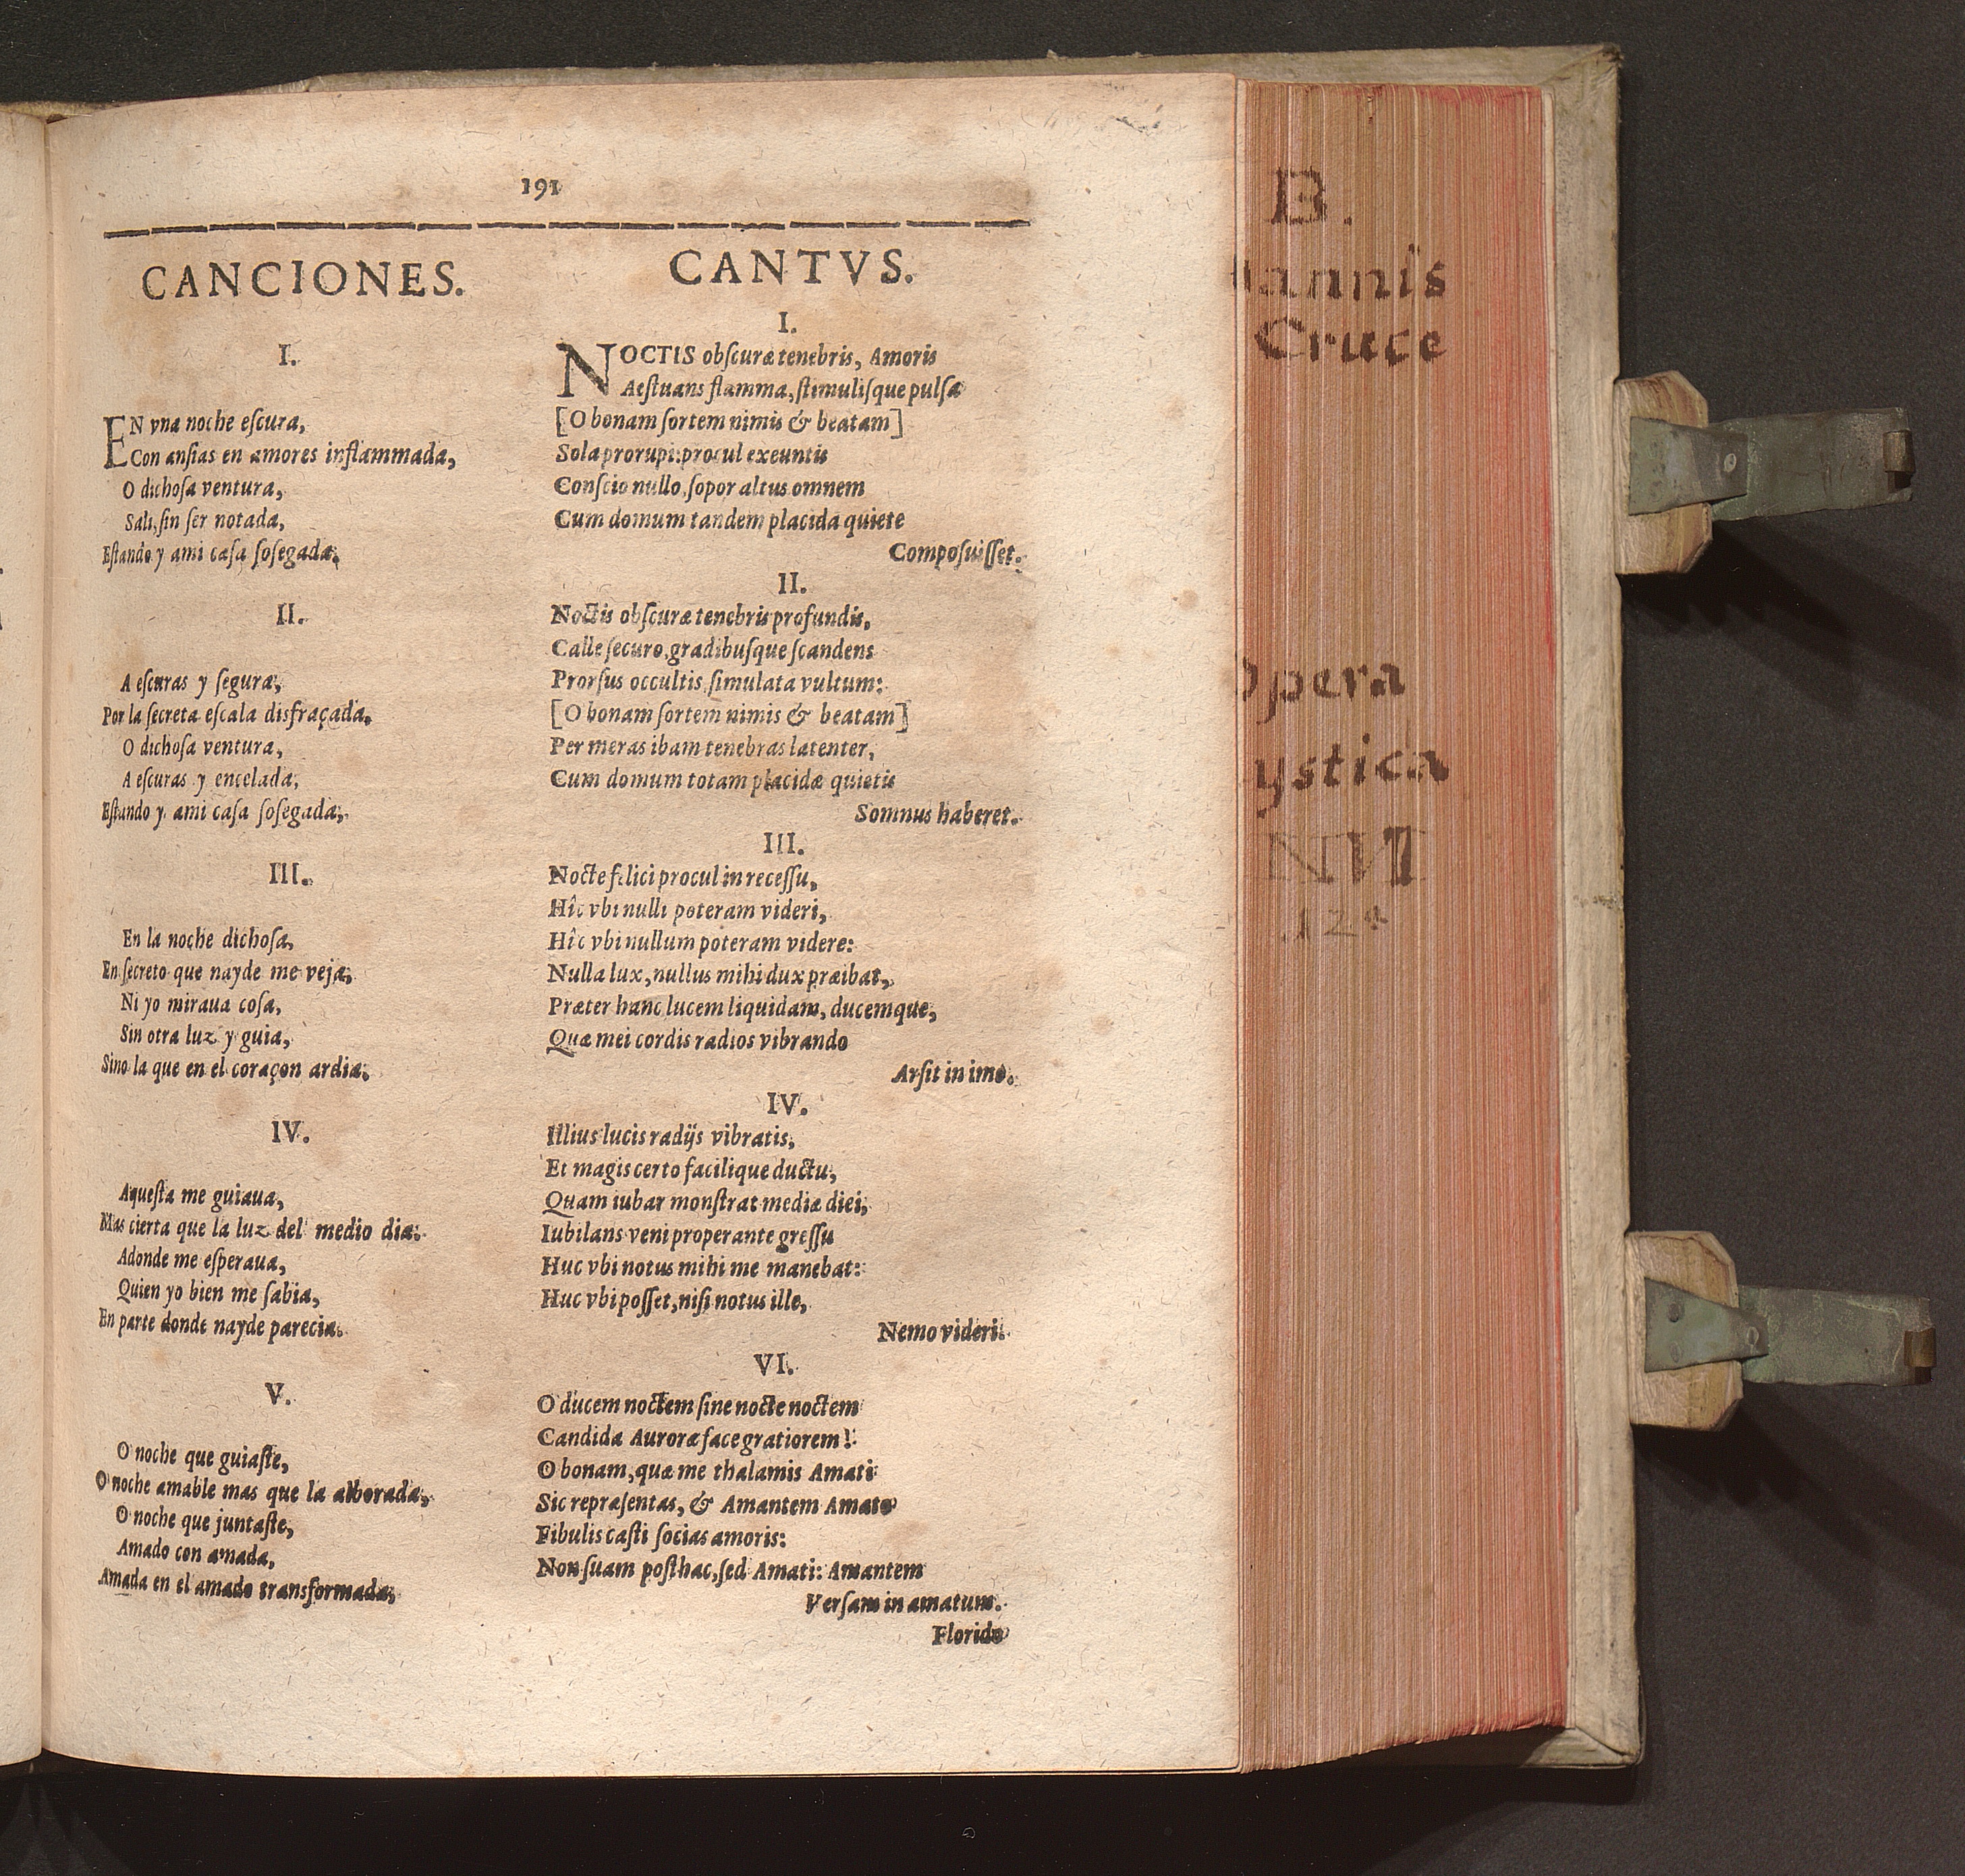 191
CANCIONES.
I.
EN vna noche eſcura,
Con anſias en amores inflammada,
O dichoſa ventura,
Sali, ſin ſer notada,
Eſtando y ami caſa ſoſegada.
II.
A eſcuras y ſegura,
Por la ſecreta eſcala disfraçada,
O dichoſa ventura,
A eſcuras y encelada,
Eſtando y ami caſa ſoſegada,
III.
En la noche dichoſa,
En ſecreto que nayde me veja,
Ni yo miraua coſa,
Sin otra luz y guia,
Sino la que en el coraçon ardia.
IV.
Aqueſta me guiaua,
Mas cierta que la luz del medio dia.
Adonde me eſperaua,
Quien yo bien me ſabia,
En parte donde nayde parecia.
V.
O noche que guiaſte,
O noche amable mas que la alborada,
O noche que juntaſte,
Amado con amada,
Amada en el amado transformada,
CANTVS.
I.
NOCTIS obſcuræ tenebris, Amoris
Aeſtuans flamma, ſtimuliſque pulſa
[O bonam ſortem nimis & beatam]
Sola prorupi: procul exeuntis
Conſcio nullo, ſopor altus omnem
Cum domum tandem placida quiete
Compoſuiſſet.
II.
Noctis obſcuræ tenebris profundis,
Calle ſecuro, gradibuſque ſcandens
Prorſus occultis, ſimulata vultum:
[O bonam ſortem nimis & beatam]
Per meras ibam tenebras latenter,
Cum domum totam placidæ quietis
Somnus haberet.
III.
Nocte felici procul in receſſu,
Hîc vbi nulli poteram videri,
Hîc vbi nullum poteram videre:
Nulla lux, nullus mihi dux præibat,
Præter hanc lucem liquidam, ducemque,
Quæ mei cordis radios vibrando
Arſit in imo.
IV.
Illius lucis radijs vibratis,
Et magis certo facilique ductu,
Quam iubar monſtrat mediæ diei,
Iubilans veni properante greſſu
Huc vbi notus mihi me manebat:
Huc vbi poſſet, niſi notus ille,
Nemo videri.
VI.
O ducem noctem ſine nocte noctem
Candida Auroræ face gratiorem!
O bonam, quæ me thalamis Amati
Sic repræſentas, & Amantem Amato
Fibulis caſti ſocias amoris:
Non ſuam poſthac, ſed Amati: Amantem
Verſam in amatum.
Florido
B.
annis
Cruce
pera
ystica